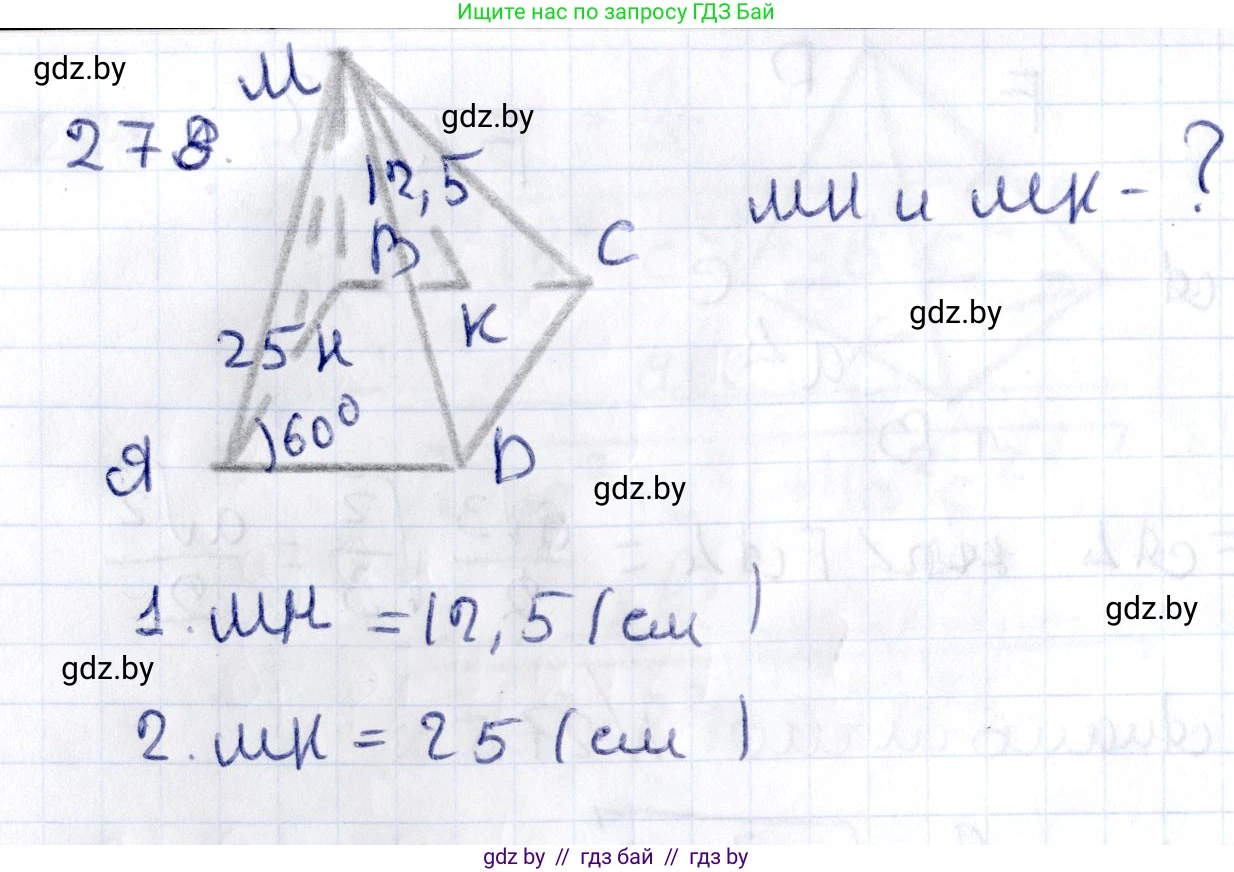 Ищите нас по запросу ГДЗ Бай
gdz.by
М
gdz.by
278.
12,5
МН и МК - ?
В
С
gdz.by
К
25 Н
60°
А
D
gdz.by
1. МН = 12,5 (см)
gdz.by
gdz.by
2. МК = 25 (см)
gdz.by // гдз бай // гдз by